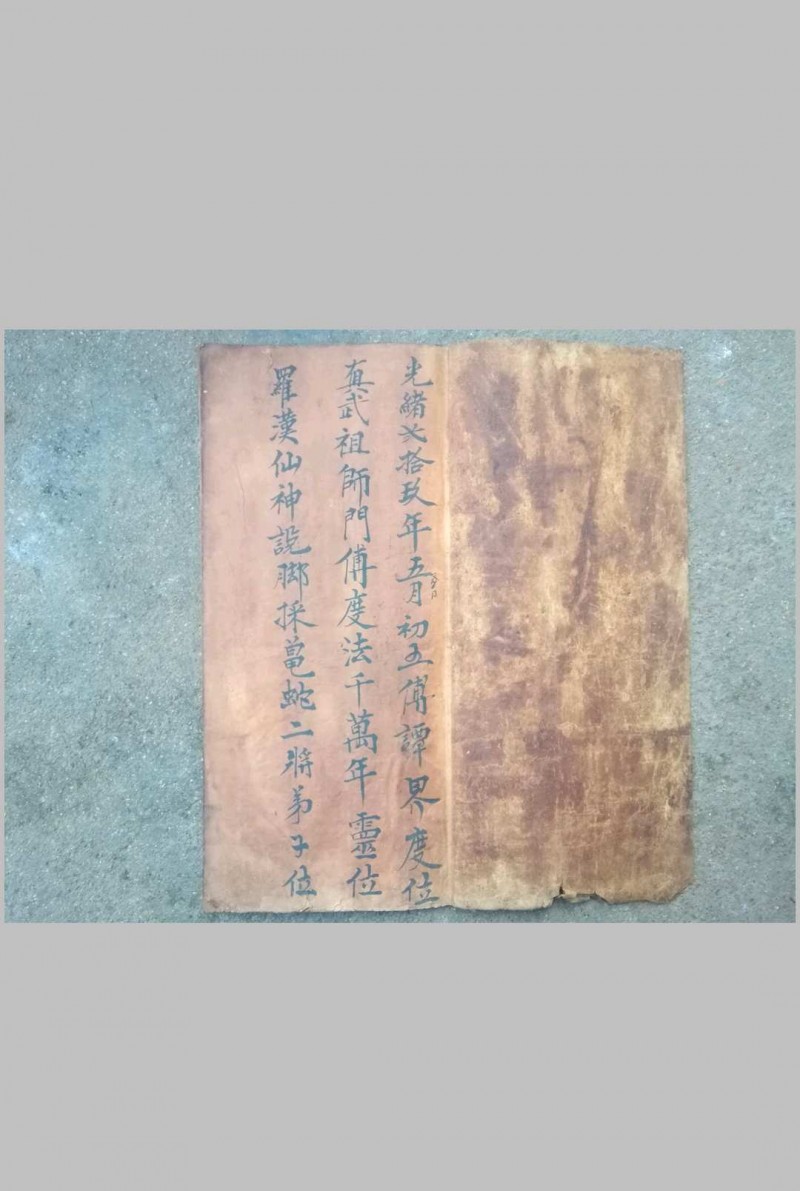 光緒弍拾玖年五月初五傅譚界度位
真武祖師門傅度法千萬年靈位
羅漢仙神説脚採黾蛇二將弟子位